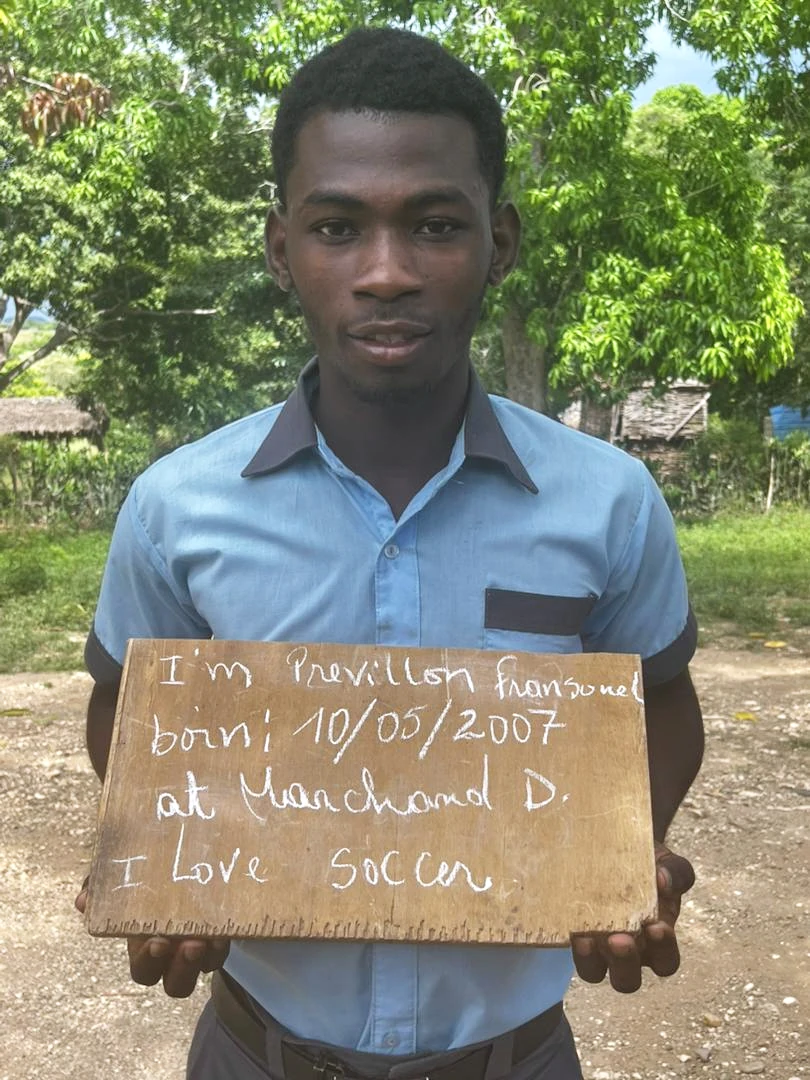 I'm Previllon Fransonel
born; 10/05/2007
at Marchand D.
I Love Soccer